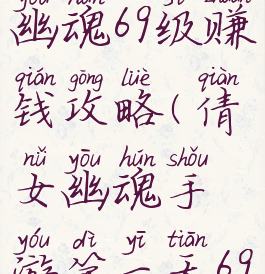 幽魂69级赚
qián gōng lüè qiàn
钱攻略(倩
nǚ yōu hún shǒu
女幽魂手
yóu dì yī tiān
游第一天69